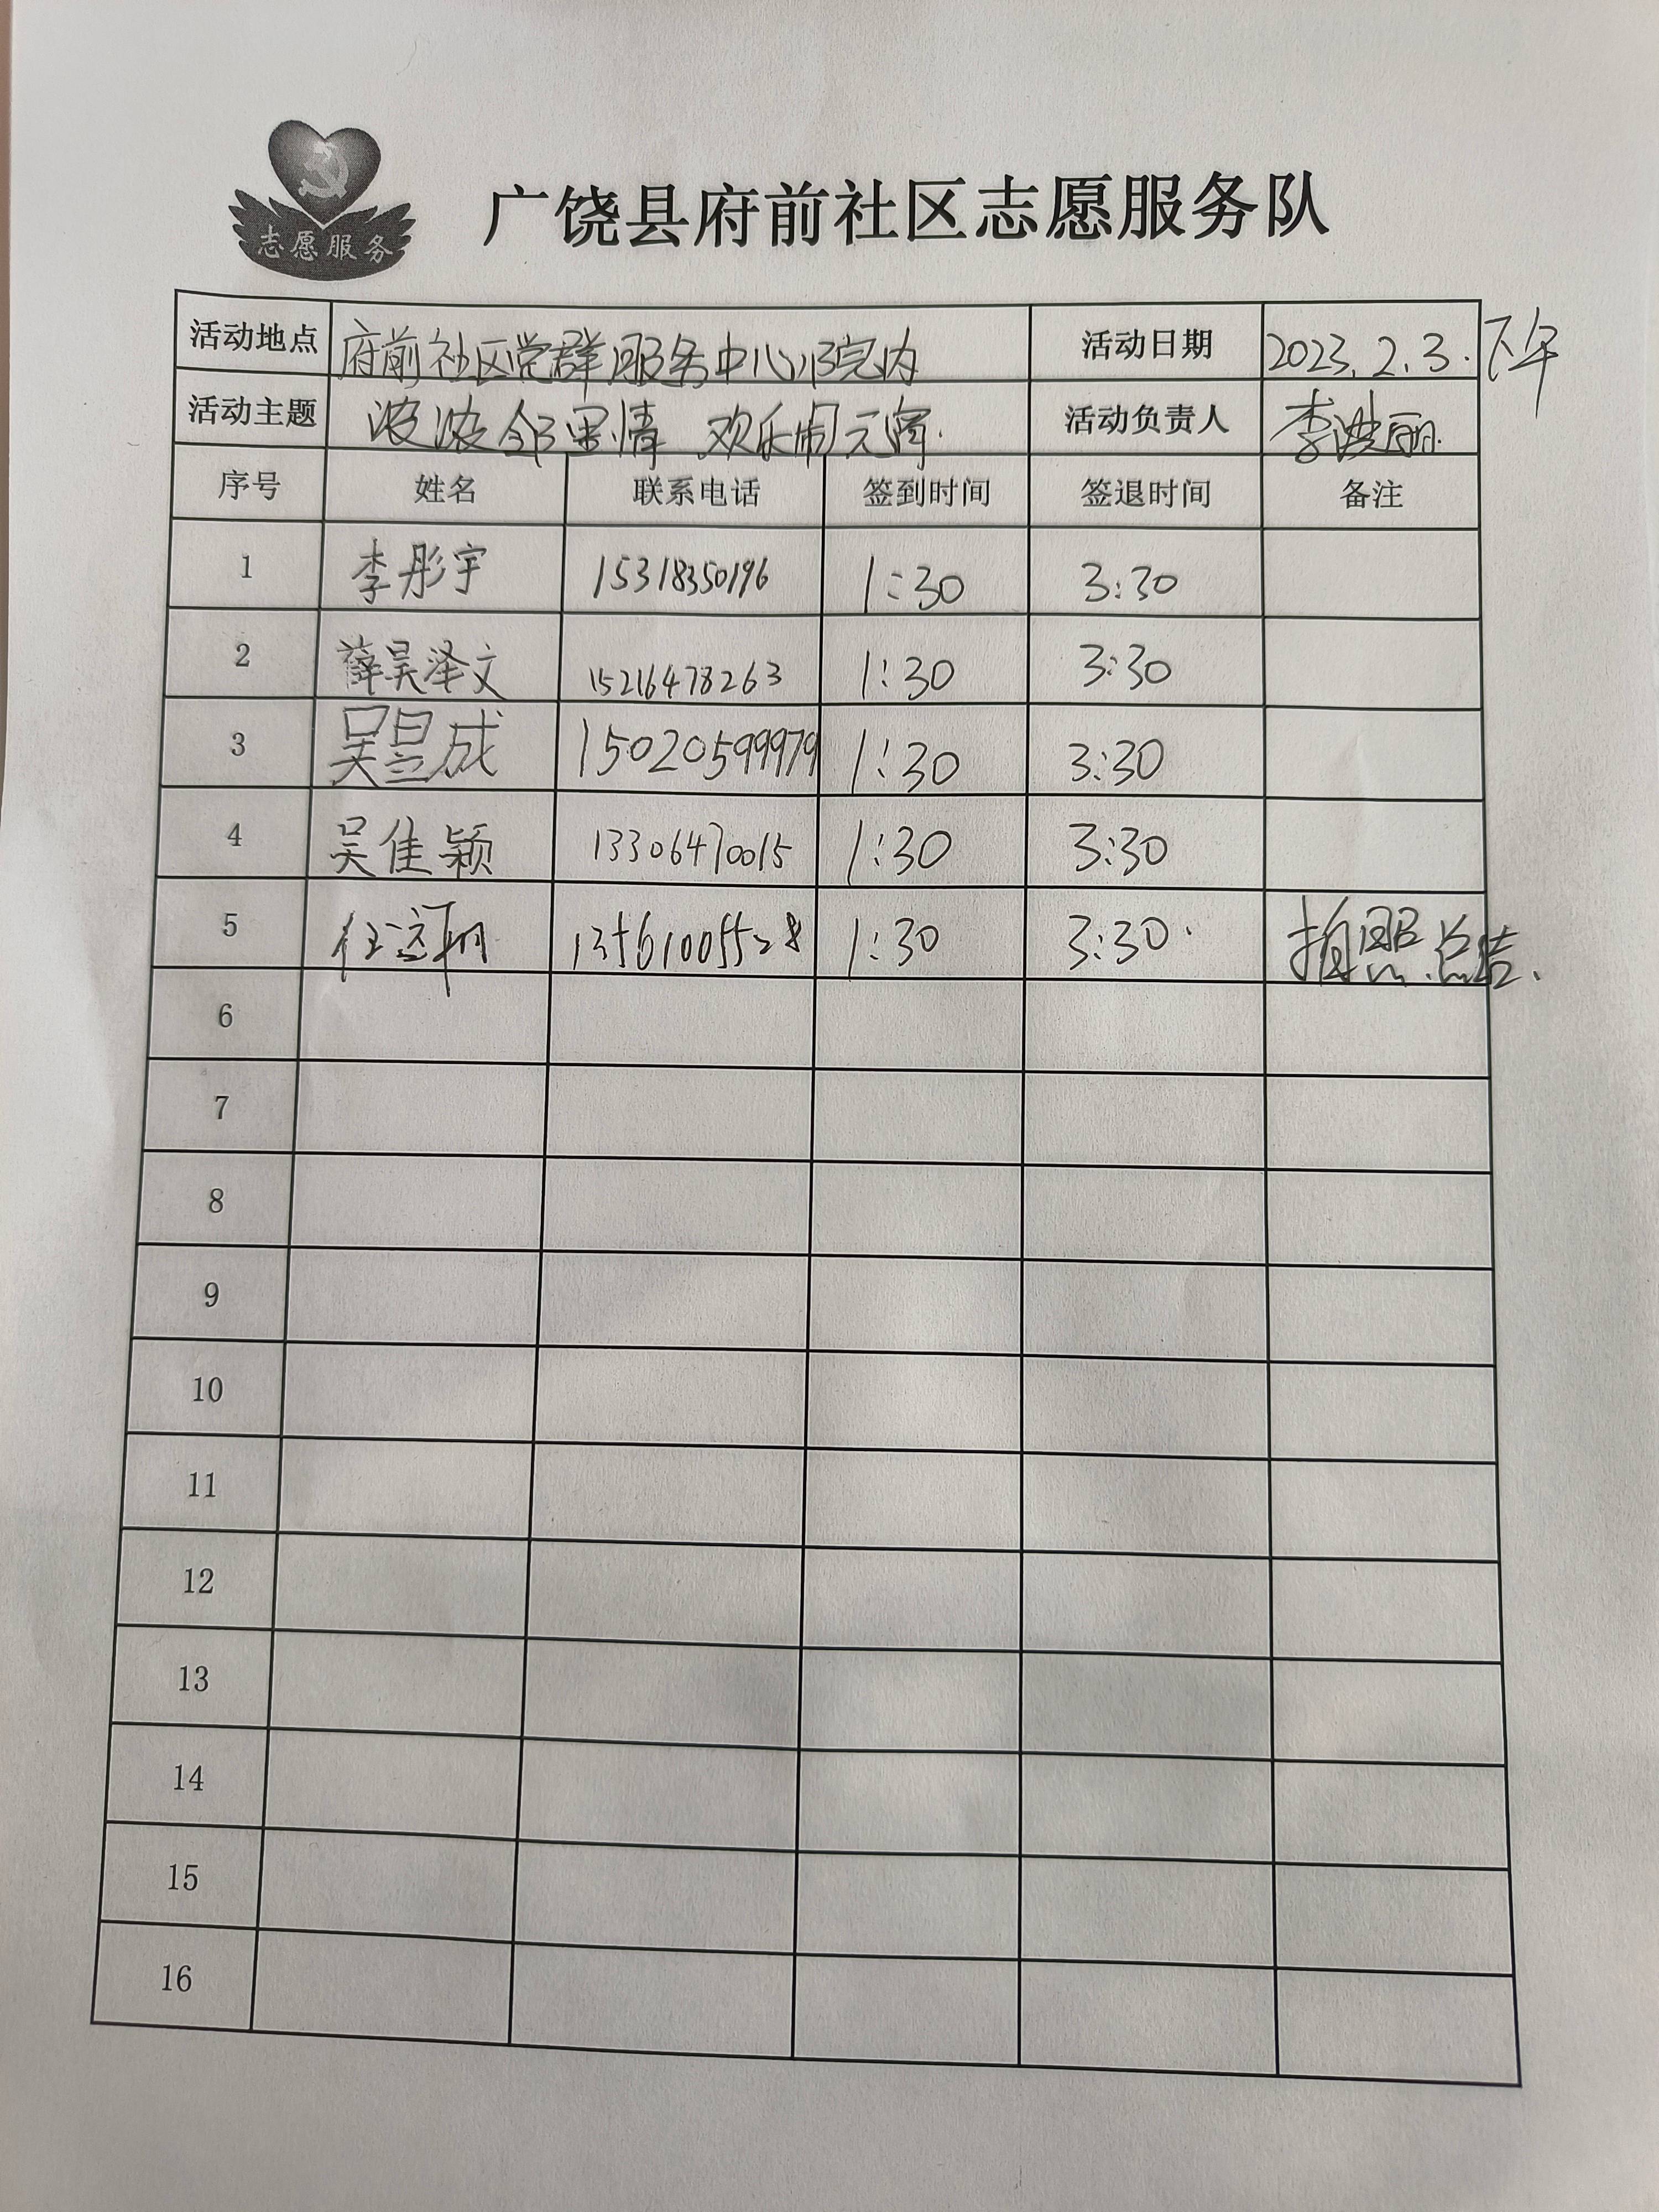 志愿服务
广饶县府前社区志愿服务队
活动地点 府前社区党群服务中心院内 活动日期 2023.2.3. 下午
活动主题 浓浓邻里情 欢乐闹元宵. 活动负责人 李洪丽
序号 姓名 联系电话 签到时间 签退时间 备注
1 李彤宇 15318350196 1:30 3:30
2 薛昊泽文 15216478263 1:30 3:30
3 吴昱成 15020599979 1:30 3:30
4 吴佳颖 13306470015 1:30 3:30
5 1:30 3:30. 拍照.总结.
6
7
8
9
10
11
12
13
14
15
16